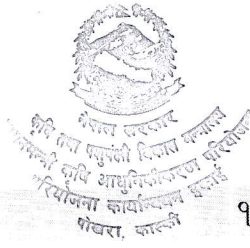 नेपाल सरकार
कृषि तथा पशुपन्छी विकास मन्त्रालय
प्रधानमन्त्री कृषि आधुनिकीकरण परियोजना
परियोजना कार्यान्वयन इकाई
पोखरा, कास्की
१